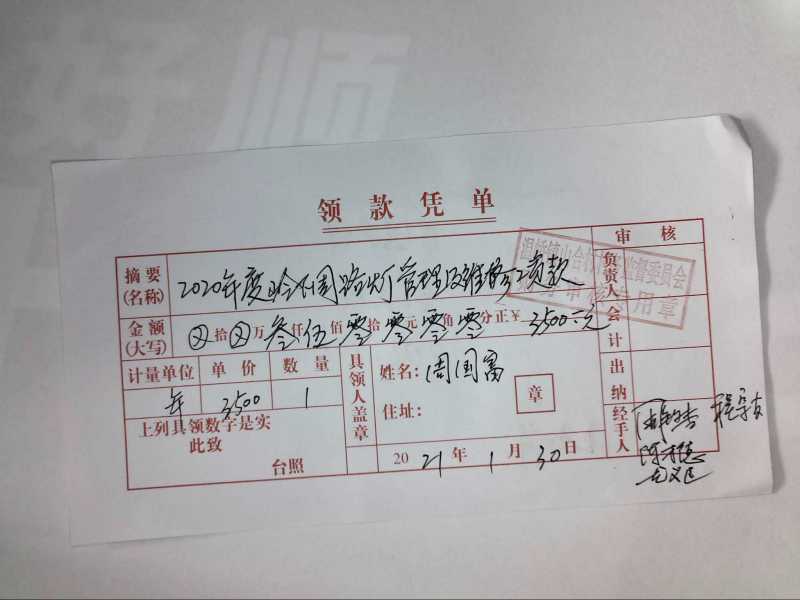 好 顺
领款凭单
审核
摘要(名称) 2020年度 路灯管理及维修工资款
负责人
监督委员会
审核专用章
金额(大写) ⊗拾⊗万叁仟伍佰零拾零元零角零分正¥ 3500元
会计
计量单位 单价 数量
年 3500 1
具领人盖章
姓名:周国富
住址:
章
出纳
上列具领数字是实
此致
台照
2021年1月30日
经手人